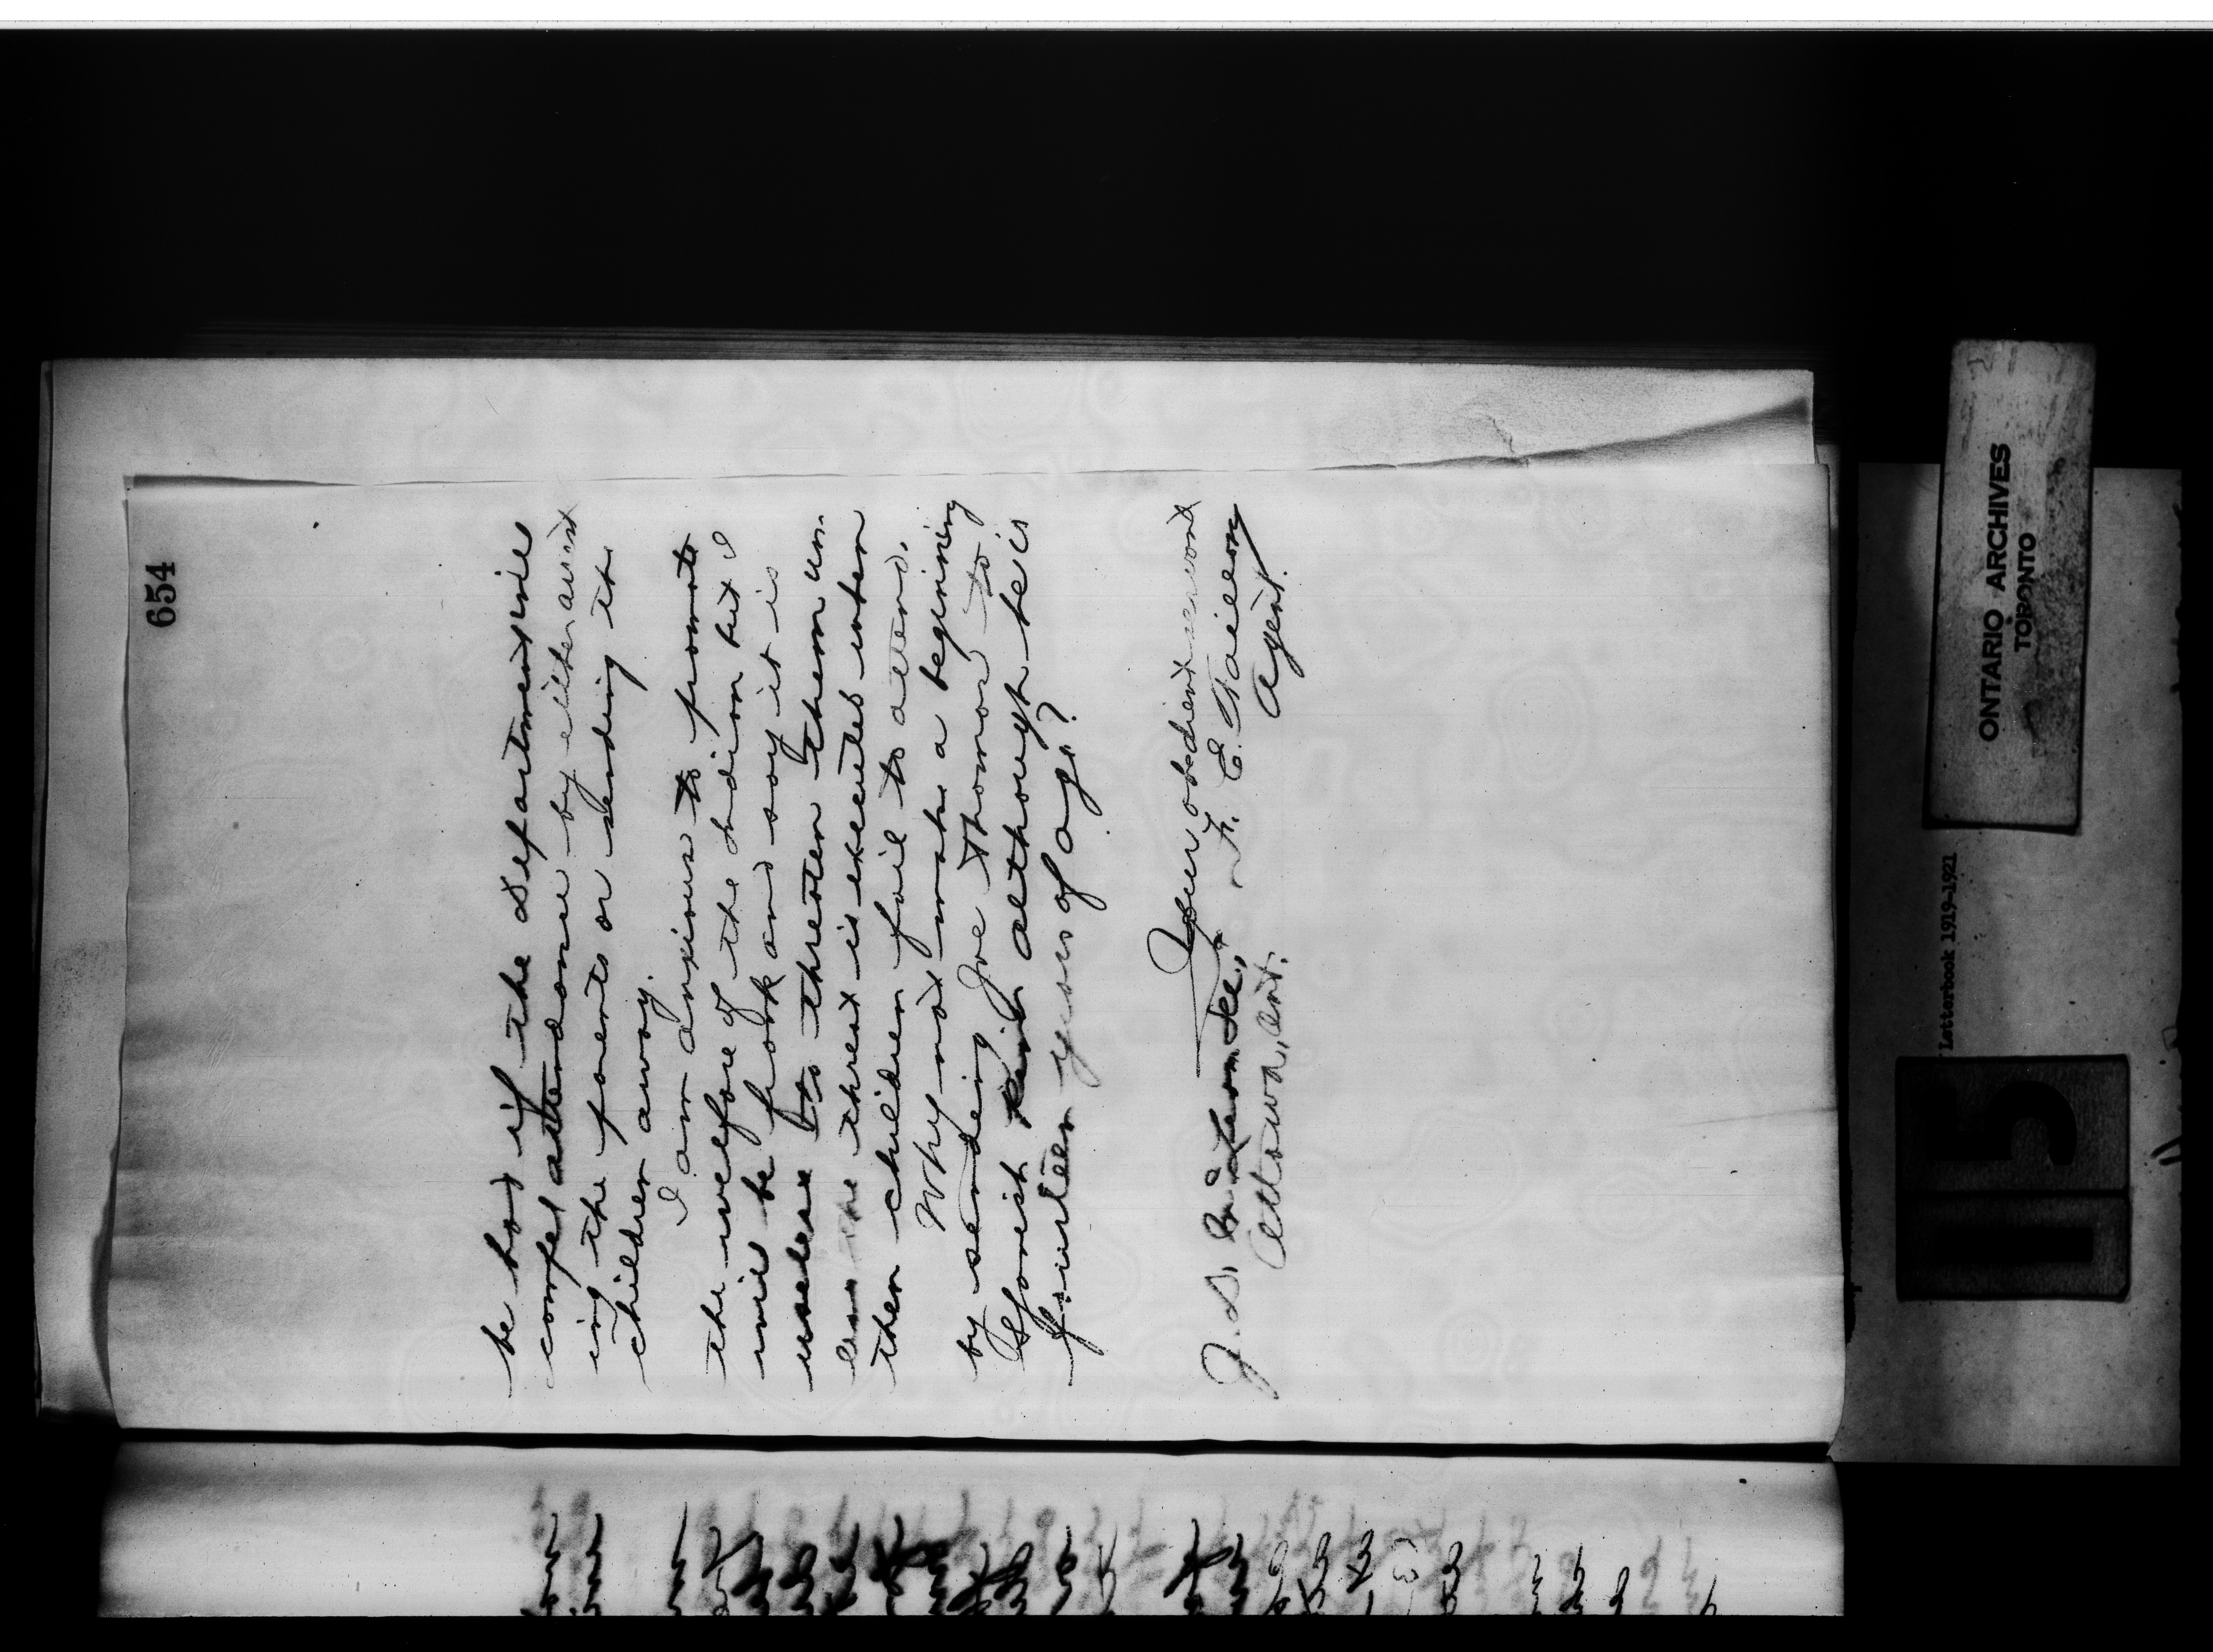 654
be had if the Department will
compel attendance by either assist
ing the parents or sending the
children away.
I am anxious to promote
the welfare of the Indian but I
will be frank and say it is
useless to threaten them un
less the threat is executed when
their children fail to attend.
Why not make a beginning
by sending Joe Thomas to
Spanish although he is
fourteen years of age?
Your obedient servant
J. D. McLean
Ottawa, Ont.
Agent.
ONTARIO ARCHIVES
TORONTO
Letterbook 1919-1921